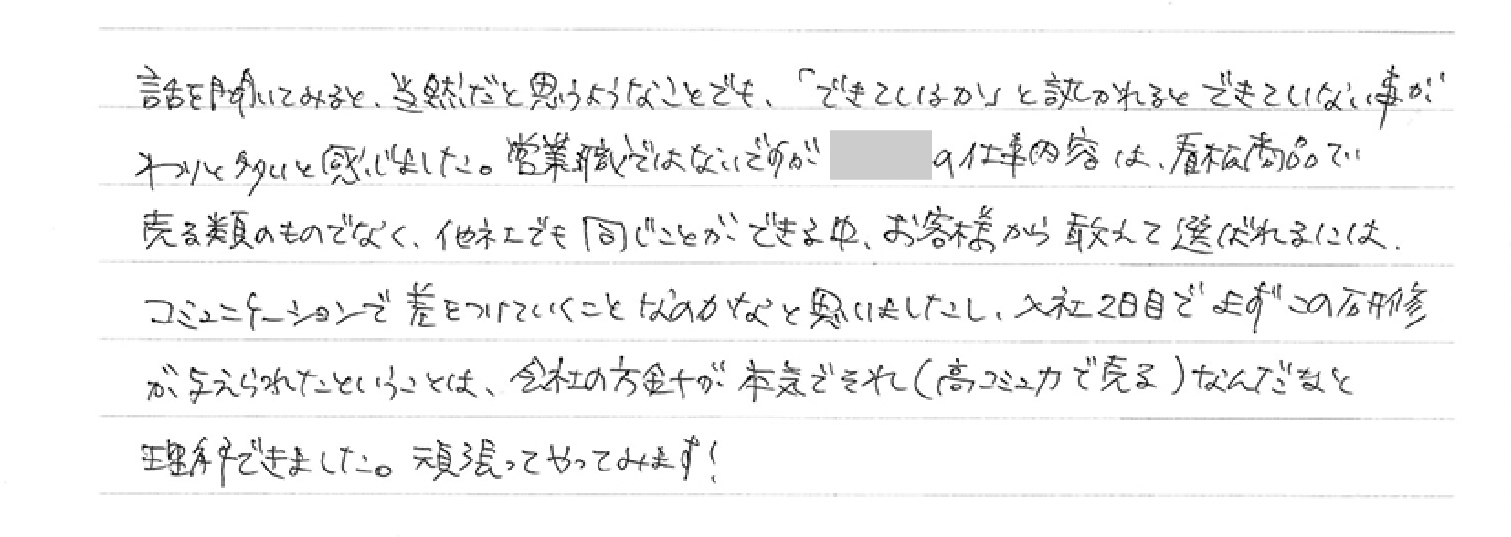 話を聞いてみると、当然だと思うようなことでも、「できているか」と訊かれるとできていない事が
わりと多いと感じました。営業職ではないですが の仕事内容は、看板商品で
売る類のものでなく、他社でも同じことができる中、お客様から敢えて選ばれるには、
コミュニケーションで差をつけていくことなのかなと思いましたし、入社2日目でまずこの研修
が与えられたということは、会社の方針が本気でそれ(高コミュ力で売る)なんだなと
理解できました。頑張ってやってみます!